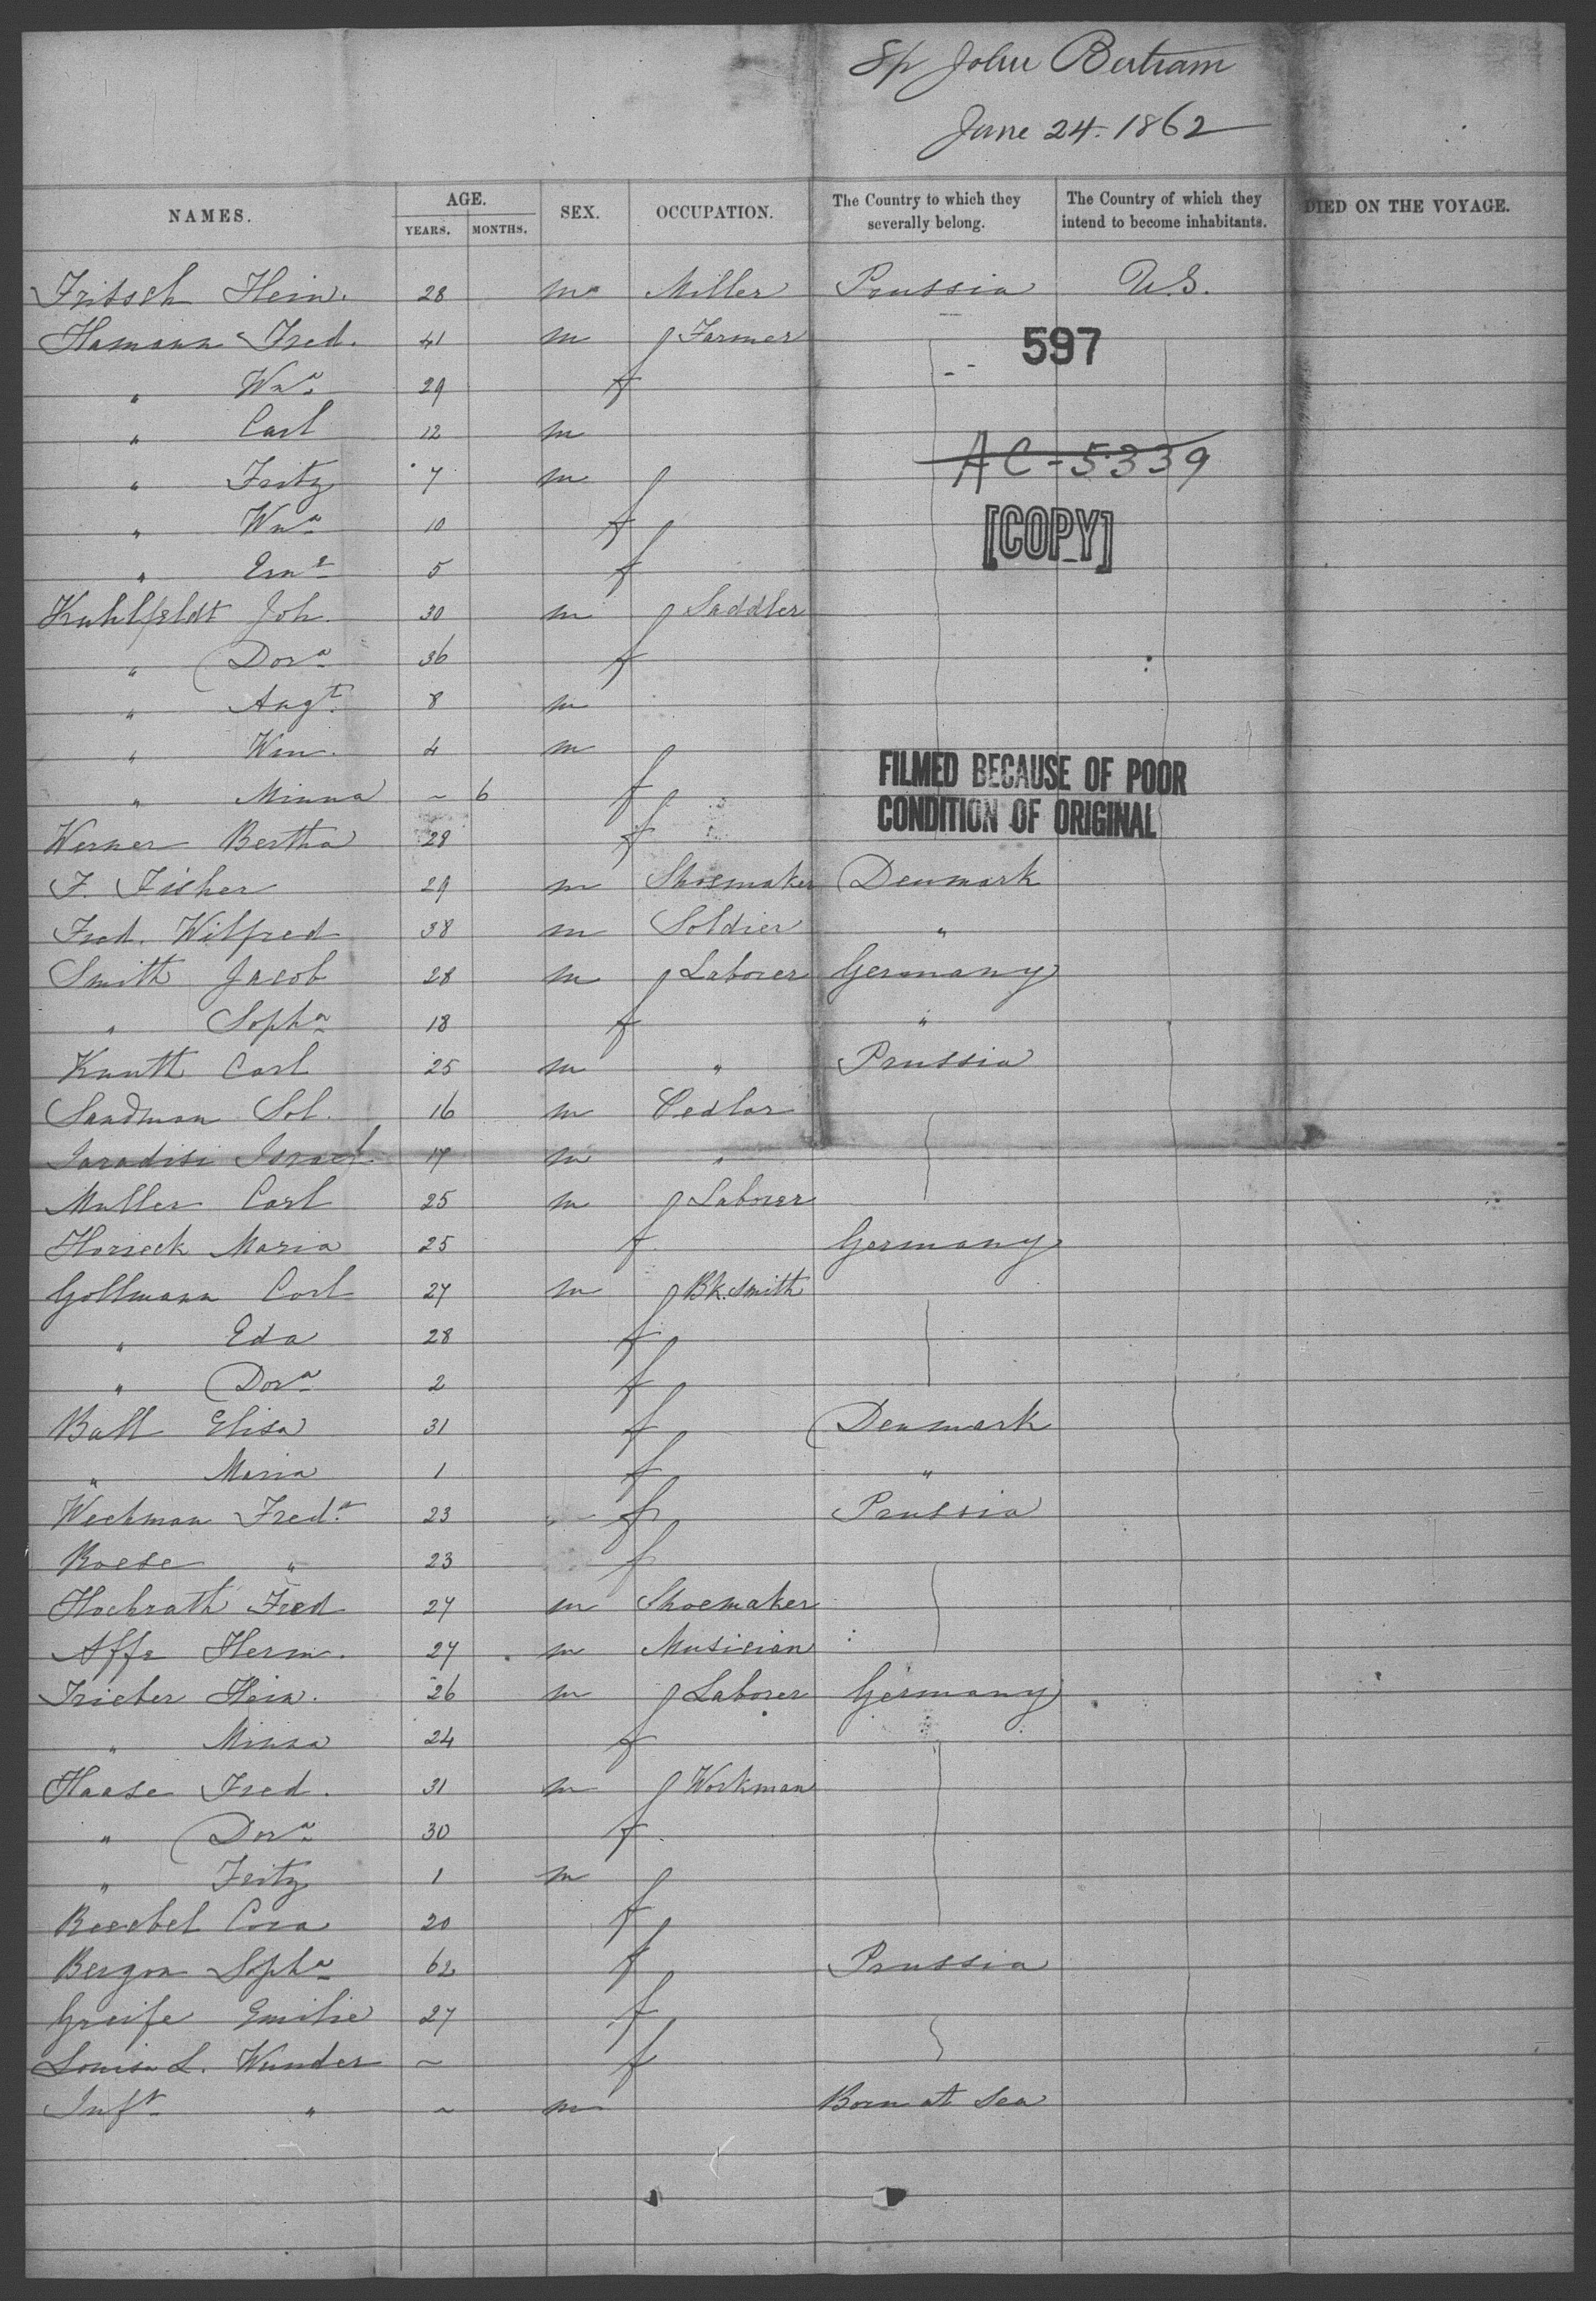 Sp John Bertram
June 24. 1862
NAMES. AGE. SEX. OCCUPATION. The Country to which they severally belong. The Country of which they intend to become inhabitants. DIED ON THE VOYAGE.
YEARS. MONTHS.
Fritsch Hein. 28 m Miller Prussia U.S.
Hamann Fred. 41 m Farmer
597
" Wᵃ 29 f
" Carl 12 m
AC-5339
" Fritz 7 m
" Wᵃ 10 f
[COPY]
" Ernᵉ 5 f
Kuhlfeldt Joh. 30 m Saddler
" Dorᵃ 36 f
" Augᵗ 8 m
" Wm. 4 m
FILMED BECAUSE OF POOR
CONDITION OF ORIGINAL
" Minna ~ 6 f
Werner Bertha 28 f
F. Fisher 29 m Shoemaker Denmark
Fred. Wilfred 38 m Soldier "
Smith Jacob 28 m Laborer Germany
" Sophᵃ 18 f "
Knuth Carl 25 m " Prussia
Sandman Sol. 16 m Pedlar
Israel 17 m "
Muller Carl 25 m Laborer
Horieck Maria 25 f Germany
Gollmann Carl 27 m Bk. Smith
" Eda 28 f
" Dorᵃ 2 f
Ball Elisa 31 f Denmark
" Maria 1 f "
Weckman Fredᵃ 23 f Prussia
Roese " 23 f
Hochrath Fred 27 m Shoemaker
Affe Herm. 27 m Musician
Hein. 26 m Laborer Germany
" Minna 24 f
Haase Fred. 31 m Workman
" Dorᵃ 30 f
" Fritz 1 m
20 f
Sophᵃ 62 f Prussia
Greife Emilie 27 f
Louisa L. Wunder ~ f
Infᵗ " ~ m Born at Sea